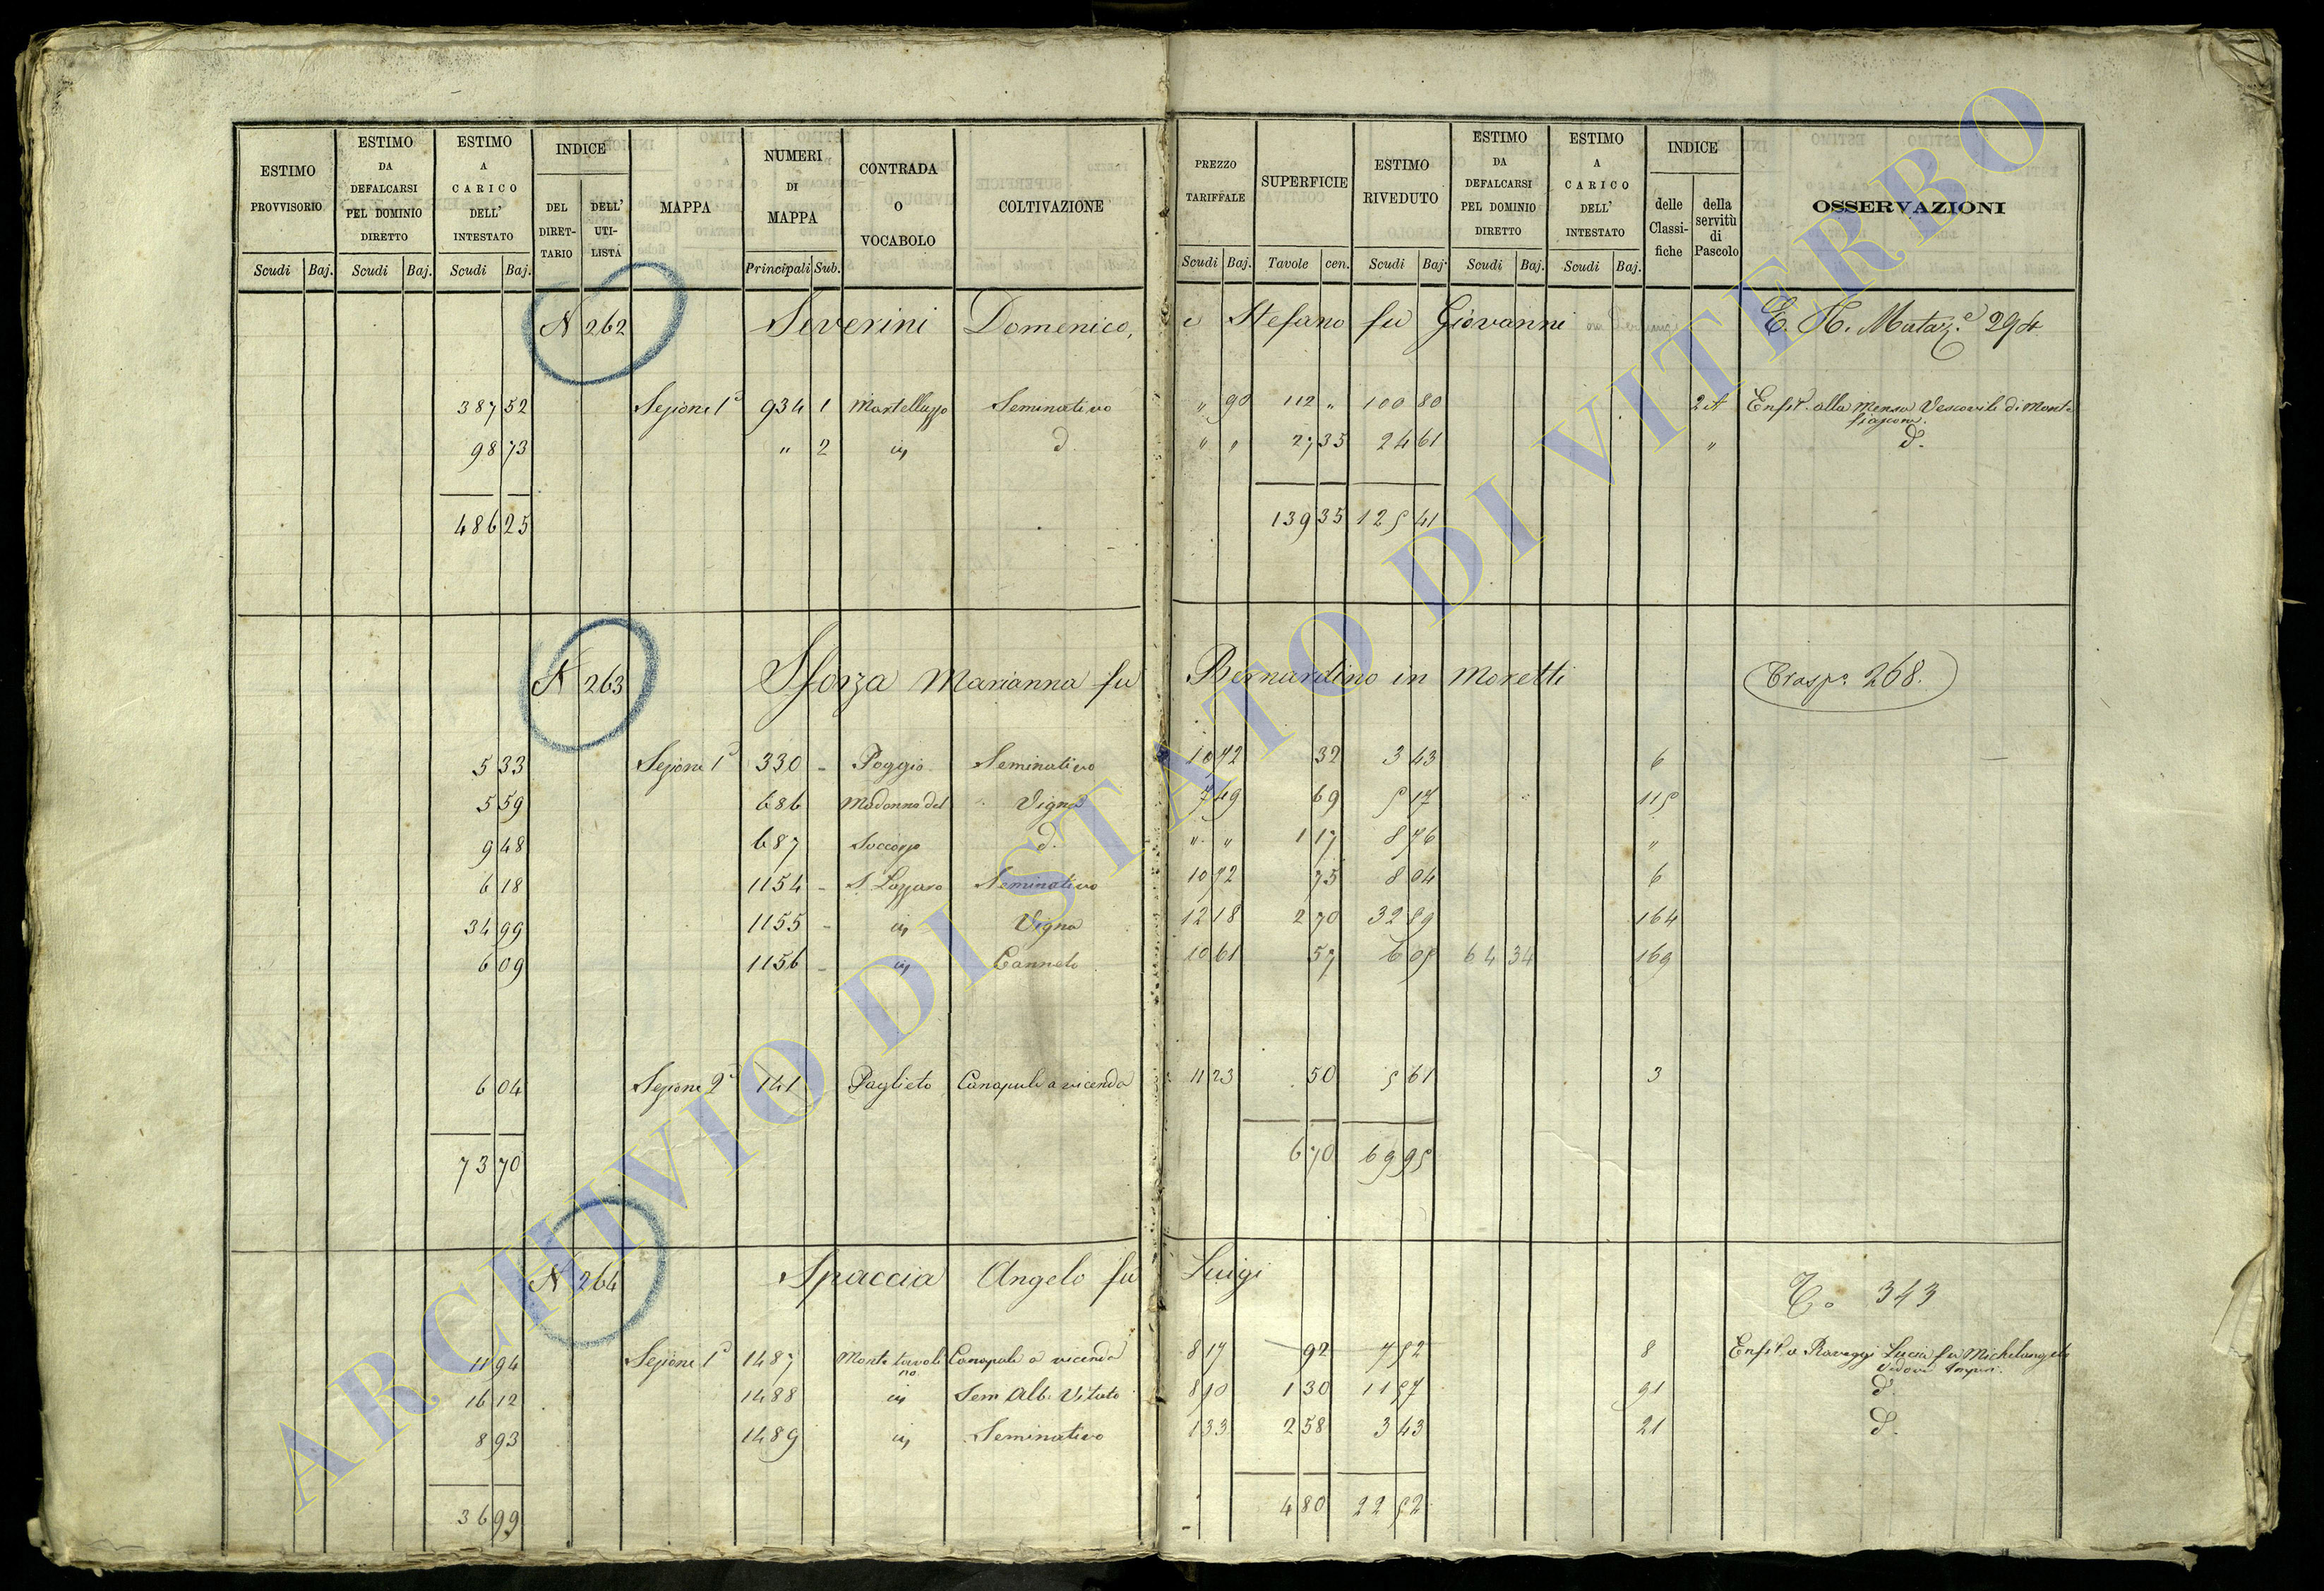 ESTIMO PROVVISORIO Scudi Baj. ESTIMO DA DEFALCARSI PEL DOMINIO DIRETTO Scudi Baj. ESTIMO A CARICO DELL' INTESTATO Scudi Baj. INDICE DEL DIRETTARIO DELL' UTILISTA MAPPA NUMERI DI MAPPA Principali Sub. CONTRADA O VOCABOLO COLTIVAZIONE PREZZO TARIFFALE Scudi Baj. SUPERFICIE Tavole cen. ESTIMO RIVEDUTO Scudi Baj. ESTIMO DA DEFALCARSI PEL DOMINIO DIRETTO Scudi Baj. ESTIMO A CARICO DELL' INTESTATO Scudi Baj. INDICE delle Classifiche della servitù di Pascolo OSSERVAZIONI
N 262 Severini Domenico, e Stefano fu Giovanni E. H. Mutaz.e 294
387 52 Sezione 1a 934 1 Martellazzo Seminativo " 90 112 " 100 80 Enfit. alla Mensa Vescovile di Monte
fiascone.
98 73 " 2 " " 27 35 24 61 " d.
486 25 139 35 125 41
N 263 Sforza Marianna fu Bernardino in Moretti Trasp.o 268.
5 33 Sezione 1a 330 - Poggio Seminativo 10 72 32 3 43 6
5 59 686 Madonna del Vigna 7 49 69 5 17 115
9 48 687 Soccorso d. " " 1 17 8 76 "
6 18 1154 - S. Lazzaro Seminativo 10 72 75 8 04 6
34 99 1155 - Vigna 12 18 2 70 32 89 164
6 09 1156 - Canneto 10 61 57 6 05 64 34 169
6 04 Sezione 2a 141 Paglieto Canapule a vicenda 11 23 50 5 61 3
73 70 6 70 69 95
N 264 Spaccia Angelo fu Luigi T.o 343
11 94 Sezione 1a 1487 Monte tavoli Canapule a vicenda 8 17 92 7 52 8 Enfit. a Raveggi Lucia fu Michelangelo
no vedova
16 12 1488 Sem. Alb. Vitato 8 90 1 30 11 57 91 d.
8 93 1489 Seminativo 1 33 2 58 3 43 21 d.
36 99 4 80 22 52
ARCHIVIO DI STATO DI VITERBO